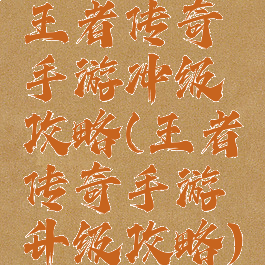 王者传奇
手游冲级
攻略(王者
传奇手游
升级攻略)